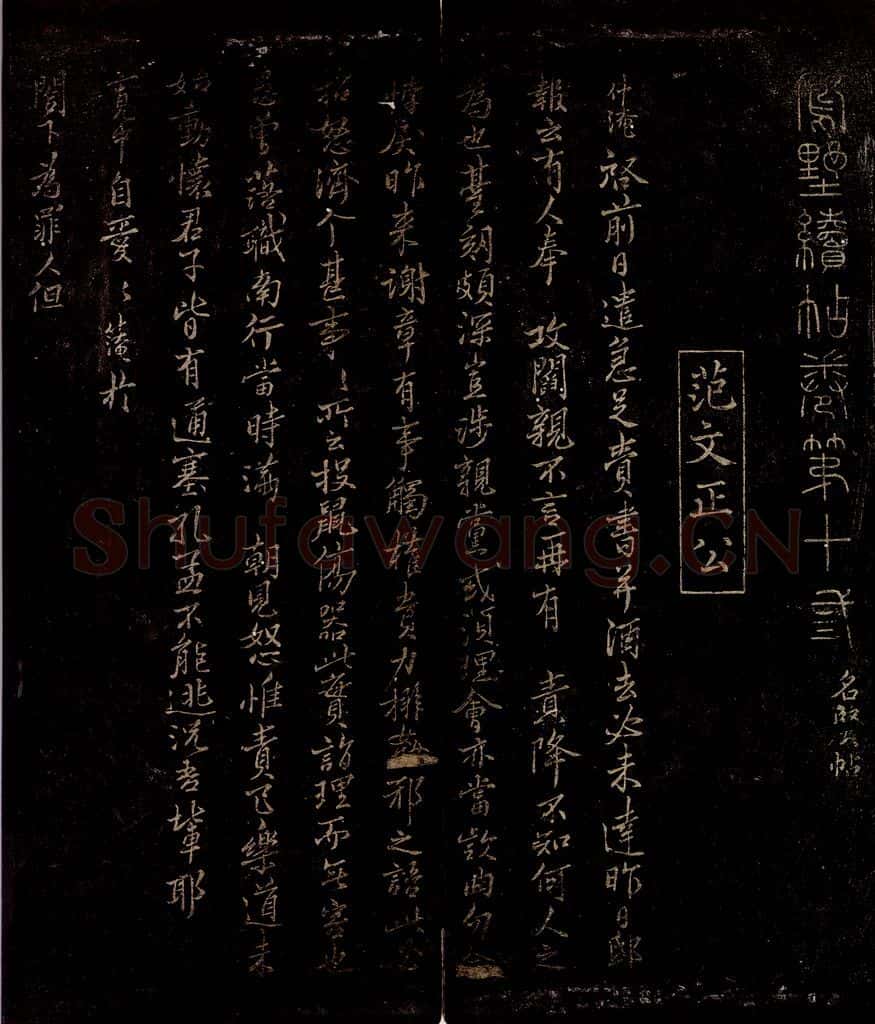 墅續帖卷第十
名臣帖
范文正公
仲淹啓前日遣急足賫書并酒去必未達昨日邸
報云有人奉攻閤親不言再有責降不知何人之
為也臺劾頗深豈涉親黨或須理會亦當款曲勿令
悖戾昨來謝章有事觸權貴力排邪之語此
招怒濟个甚事〻所云投鼠傷器此實詣理而無害也
曾落職南行當時滿朝見怒惟責己樂道未
始動懷君子皆有通塞孔孟不能逃況吾輩耶
寬中自愛〻淹於
閤下為罪人但
Shufawang.CN